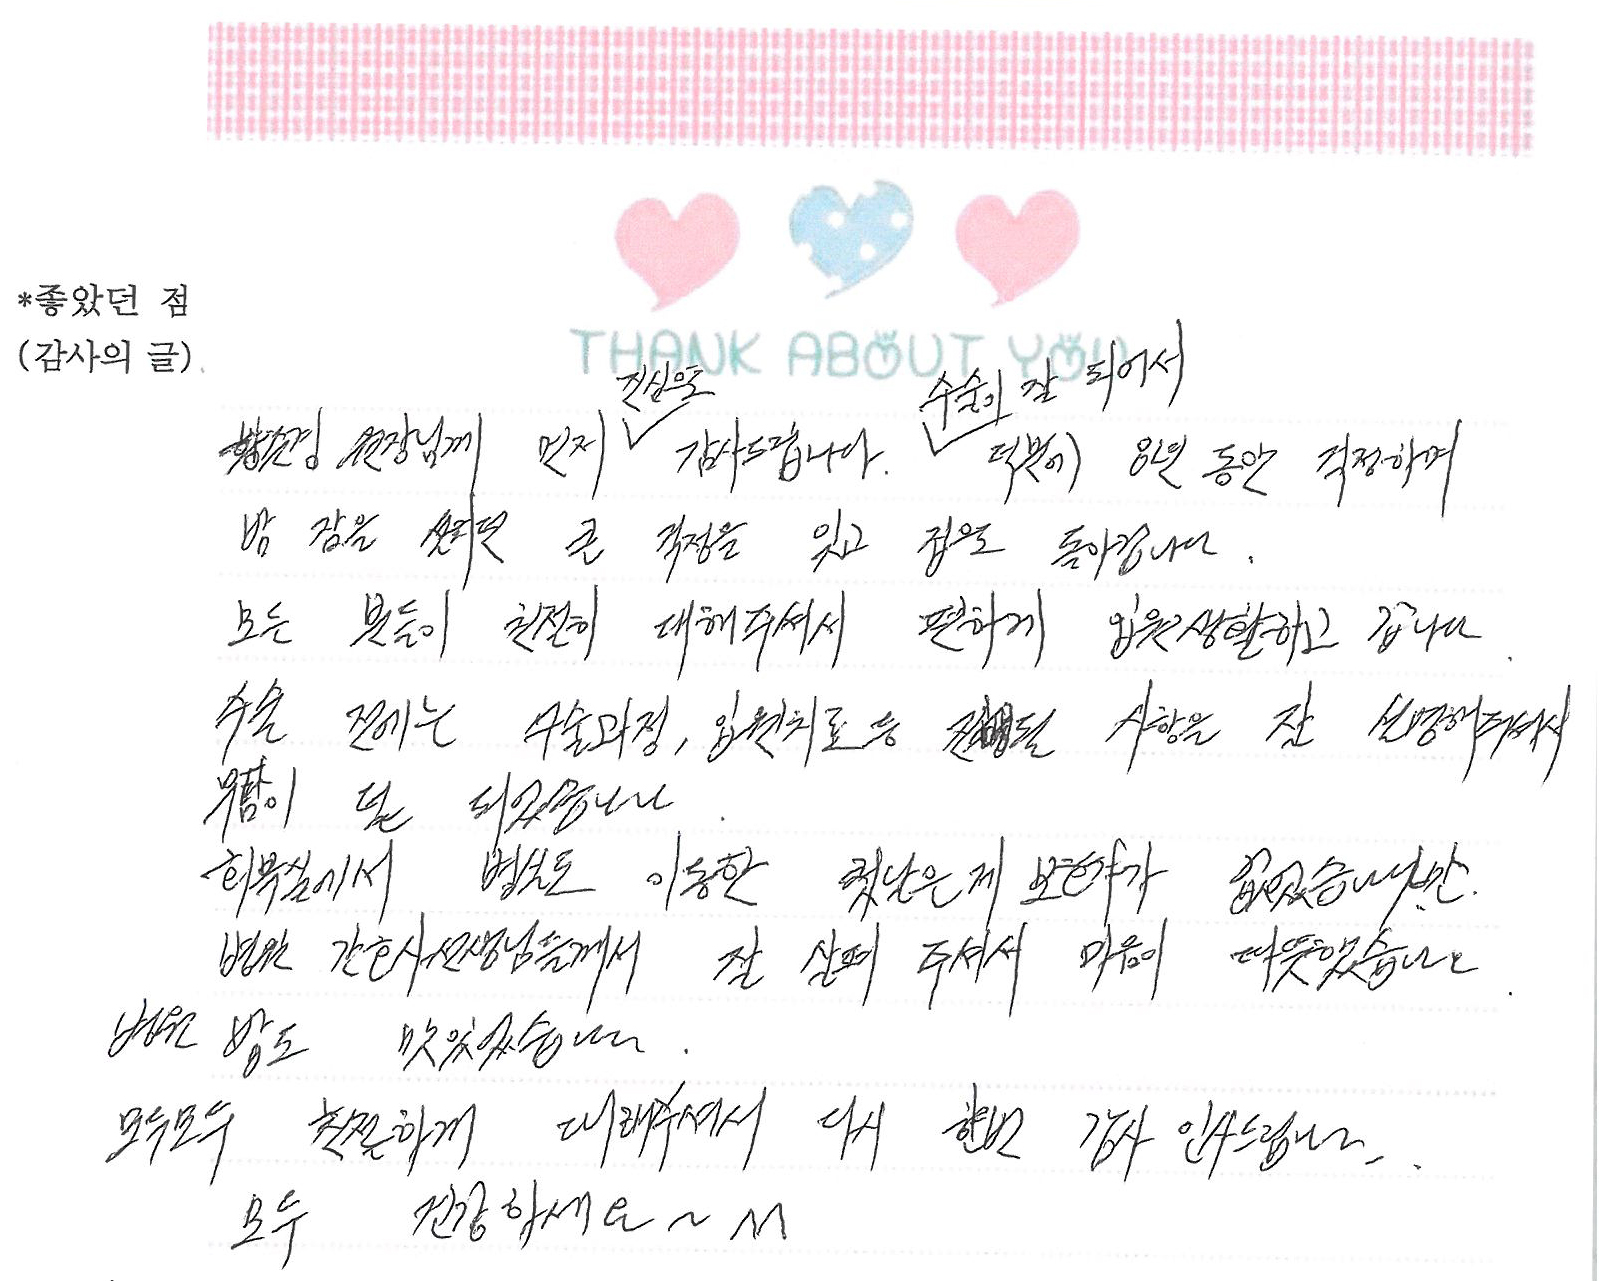 THANK ABOUT YOU
*좋았던 점
(감사의 글)
진심으로 수술이 잘 되어서
원장님께 먼저 감사드립니다. 덕분에 8년 동안 걱정하며
밤 잠을 설치던 큰 걱정을 잊고 집으로 돌아갑니다.
모든 분들이 친절히 대해주셔서 편하게 입원생활하고 갑니다.
수술 전에는 수술과정, 입원치료등 진행될 사항을 잘 설명해주셔서
부담이 덜 되었습니다.
회복실에서 병실로 이동한 첫날은 제 보호자가 없었습니다만.
병원 간호사선생님들께서 잘 살펴 주셔서 마음이 따뜻했습니다.
병원 밥도 맛있었습니다.
모두모두 친절하게 대해주셔서 다시 한번 감사 인사드립니다.
모두 건강하세요~